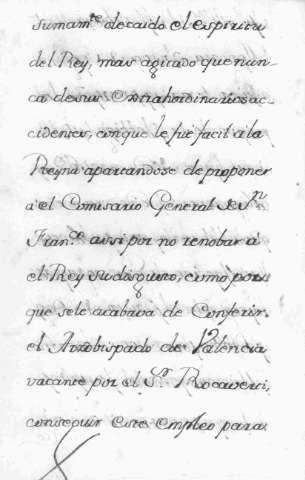 sumam.te decaido el espiritu
del Rey, mas agitado que nun-
ca de sus Extrahordinarios ac-
cidentes, conque le fué facil a la
Reyna apartandose de proponer
á el Comisario General de S.n
Fran.co assi por no renobar á
el Rey su disgusto, como por
que se le acabava de Conferir
el Arzobispado de Valencia
vacante por el S.r Rocaverti,
conseguir este empleo para